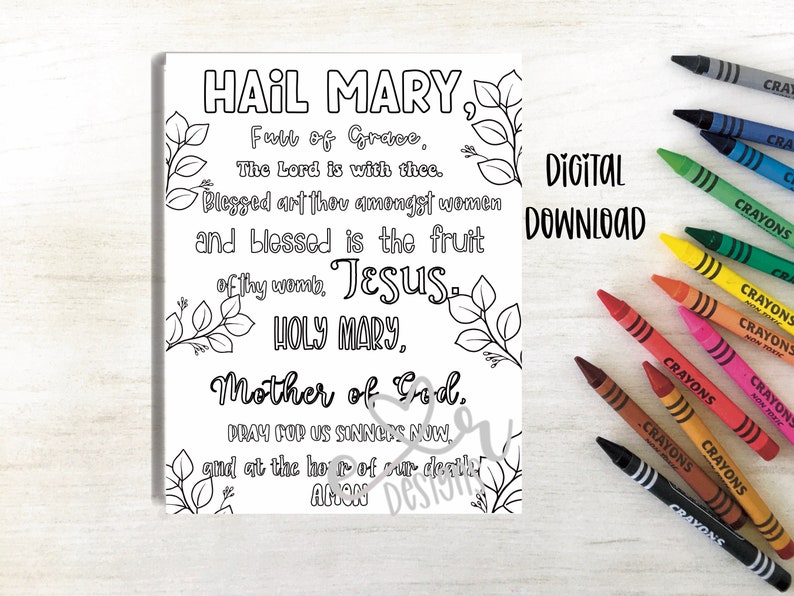 HAiL MARY,
Full of Grace,
The Lord is with thee.
Blessed art thou amongst women
and blessed is the fruit
of thy womb, JESUS.
HOLY MARY,
Mother of God,
PRAY FOR US SINNERS NOW,
and at the hour of our death
AMON
c r
DESIGNS
DIGITAL
DOWNLOAD
CRAYONS
CRAYONS
NON TOXIC
CRAYONS
NON TOXIC
CRAYONS
NON TOXIC
CRAYONS
NON TOXIC
CRAYONS
CRAYONS
CRAYONS